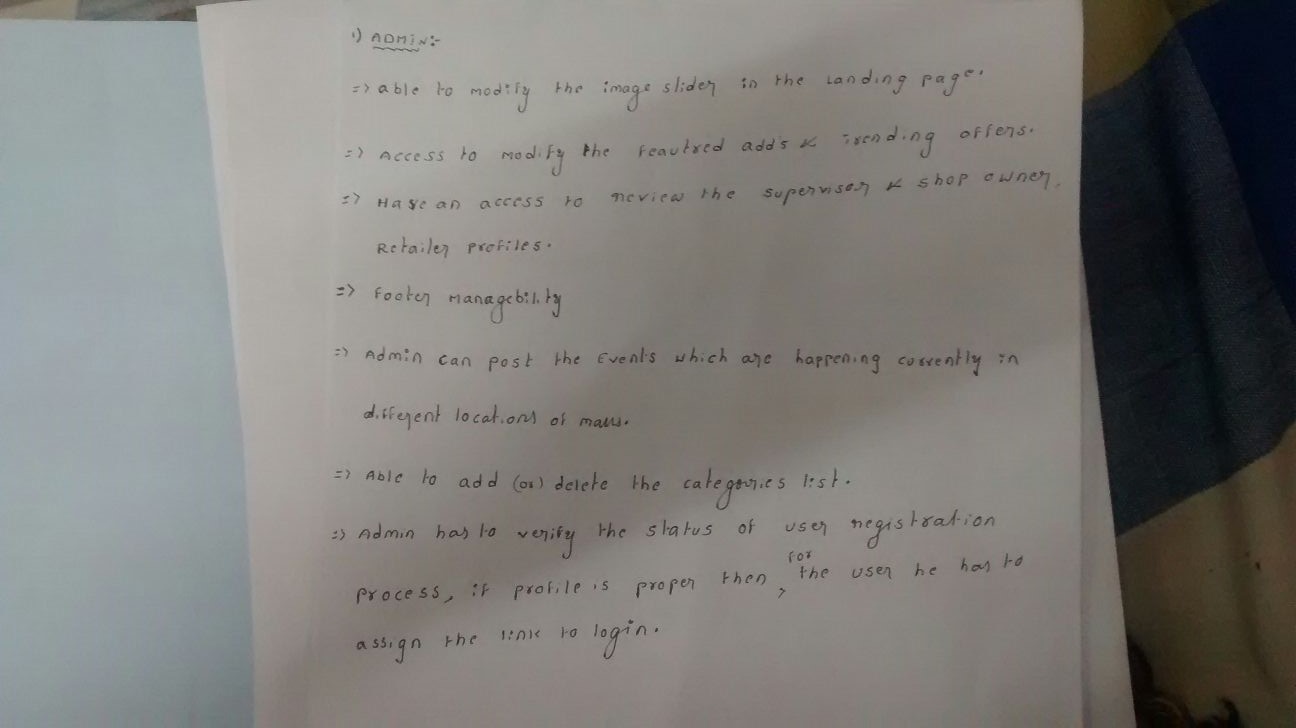 1) ADMIN:-
=> able to modify the image slider in the Landing page.
=> Access to modify the Feautred adds & Trending offers.
=> Have an access to review the supervisor & shop owner,
Retailer profiles.
=> Footer Managebility
=> Admin can post the Events which are happening currently in
different locations of malls.
=> Able to add (or) delete the categories list.
=> Admin has to verify the status of user registration
process, if profile is proper then, for the user he has to
assign the link to login.